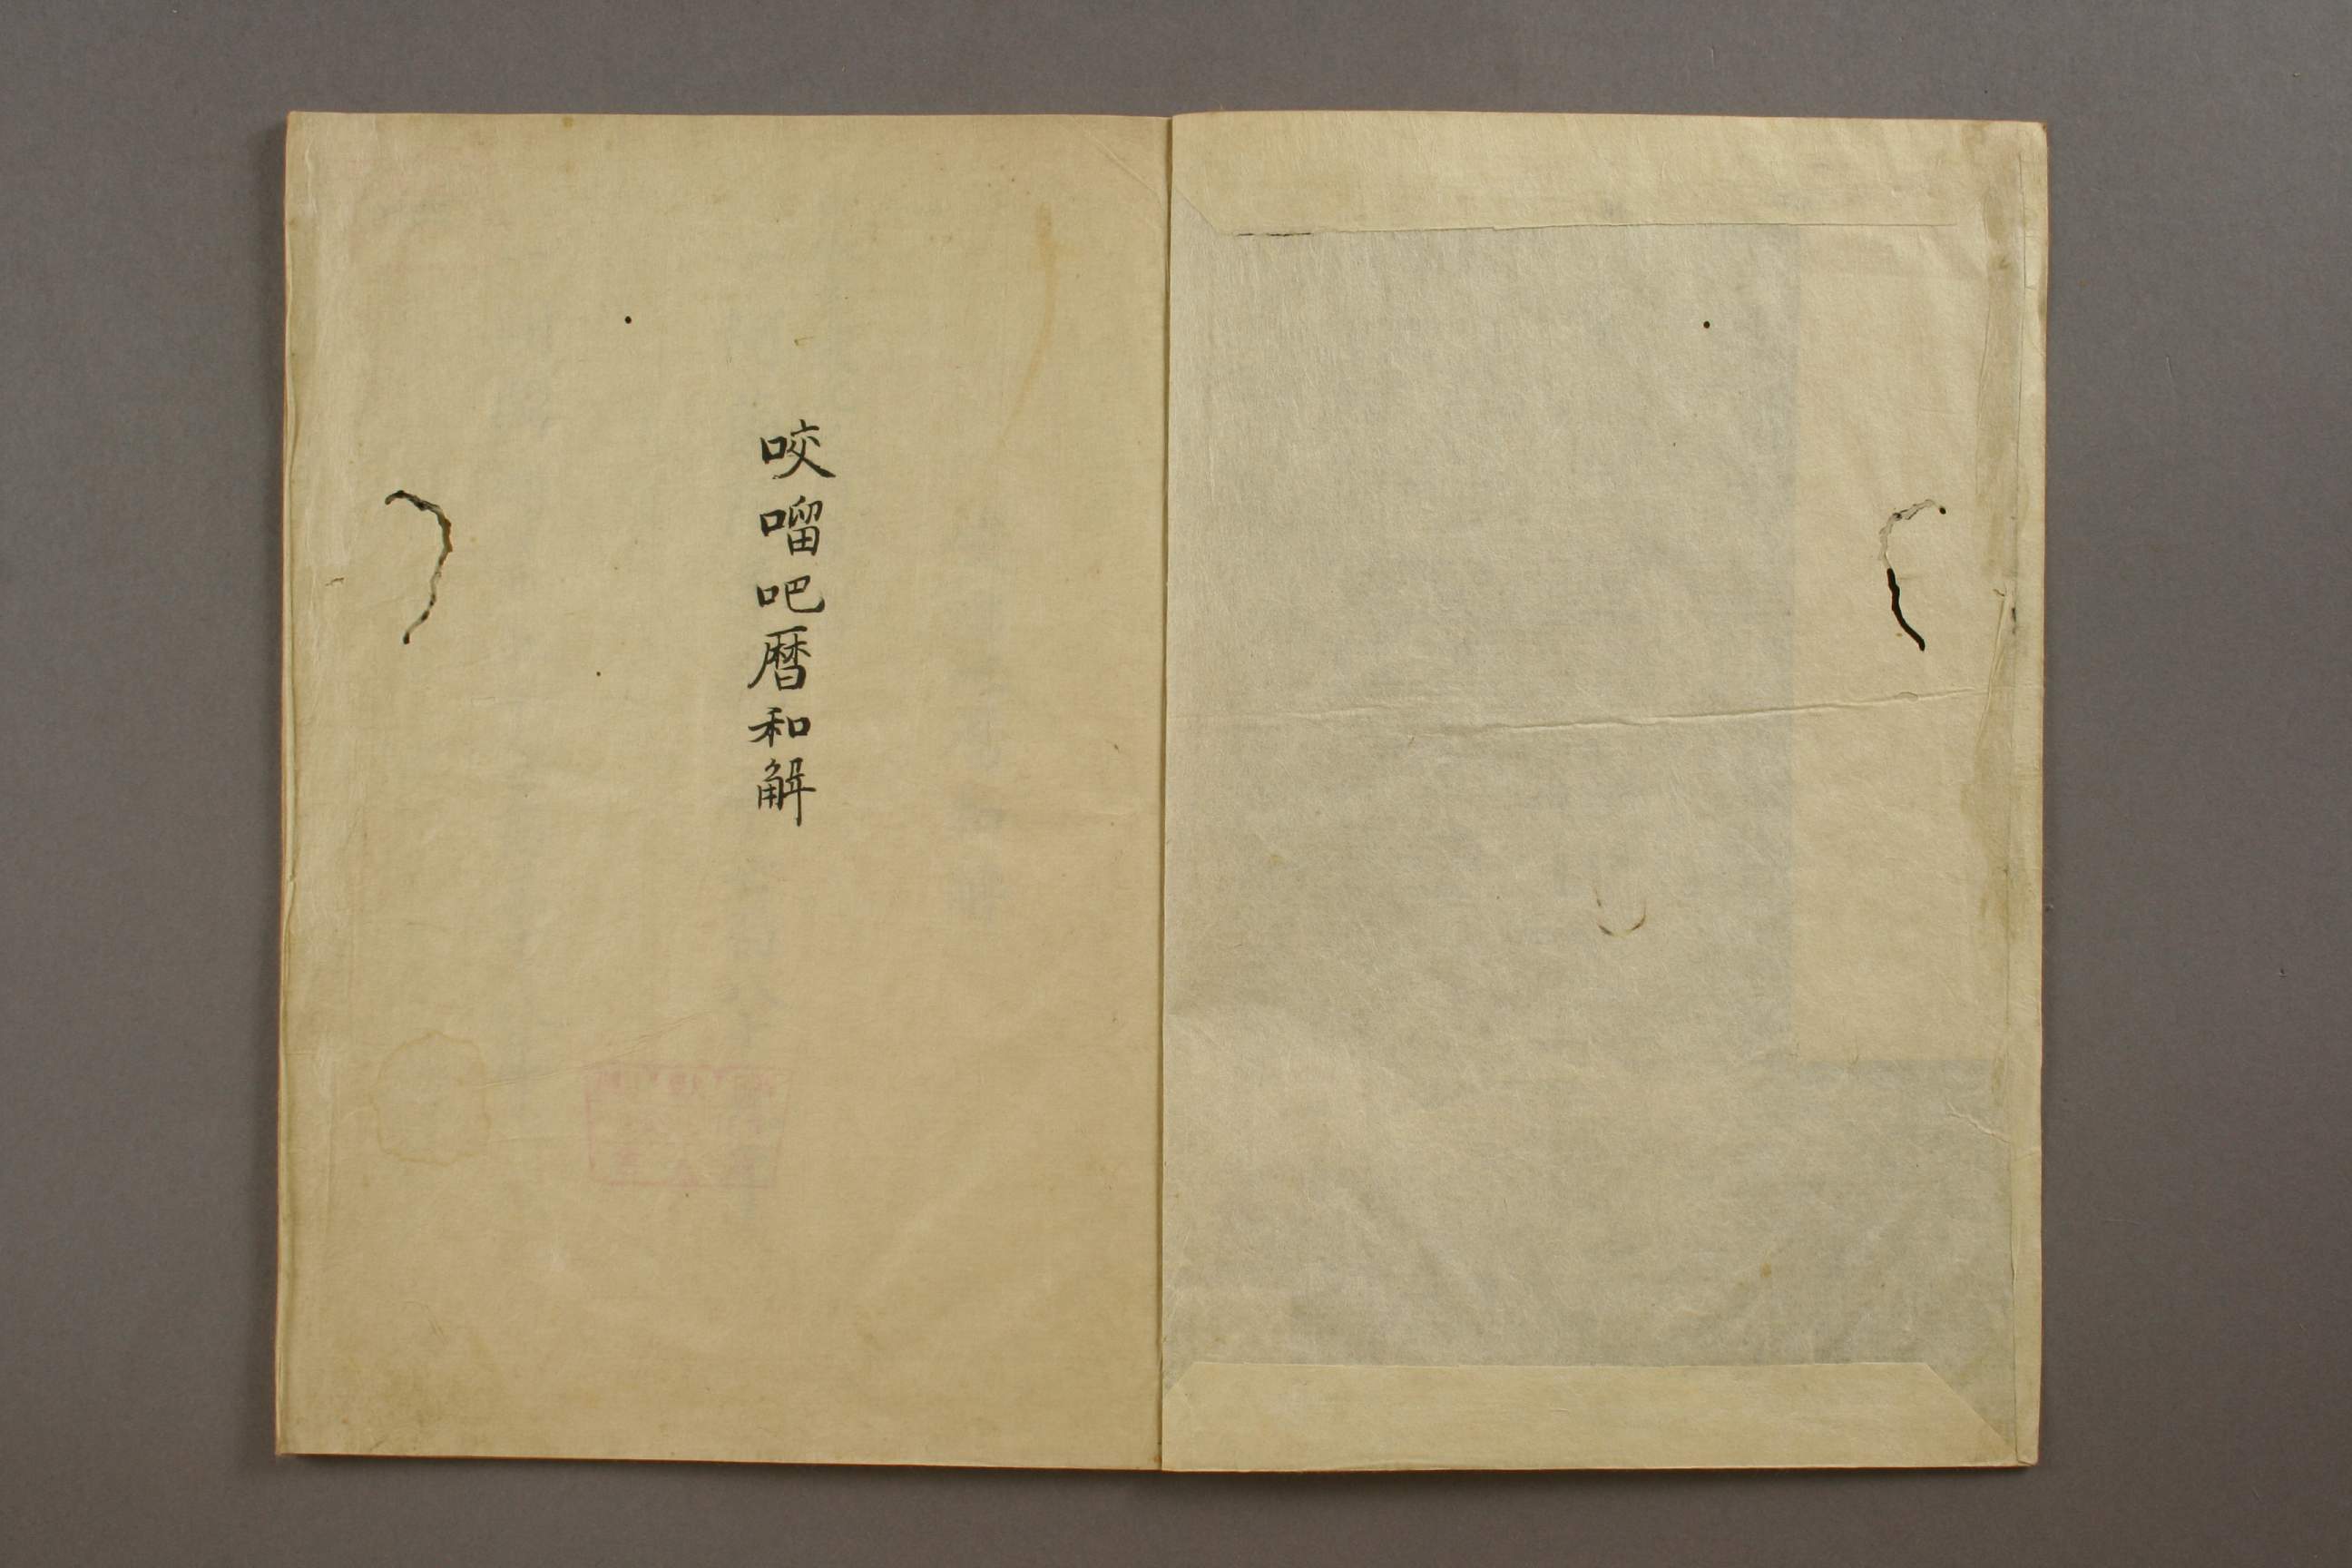 咬𠺕吧暦和解